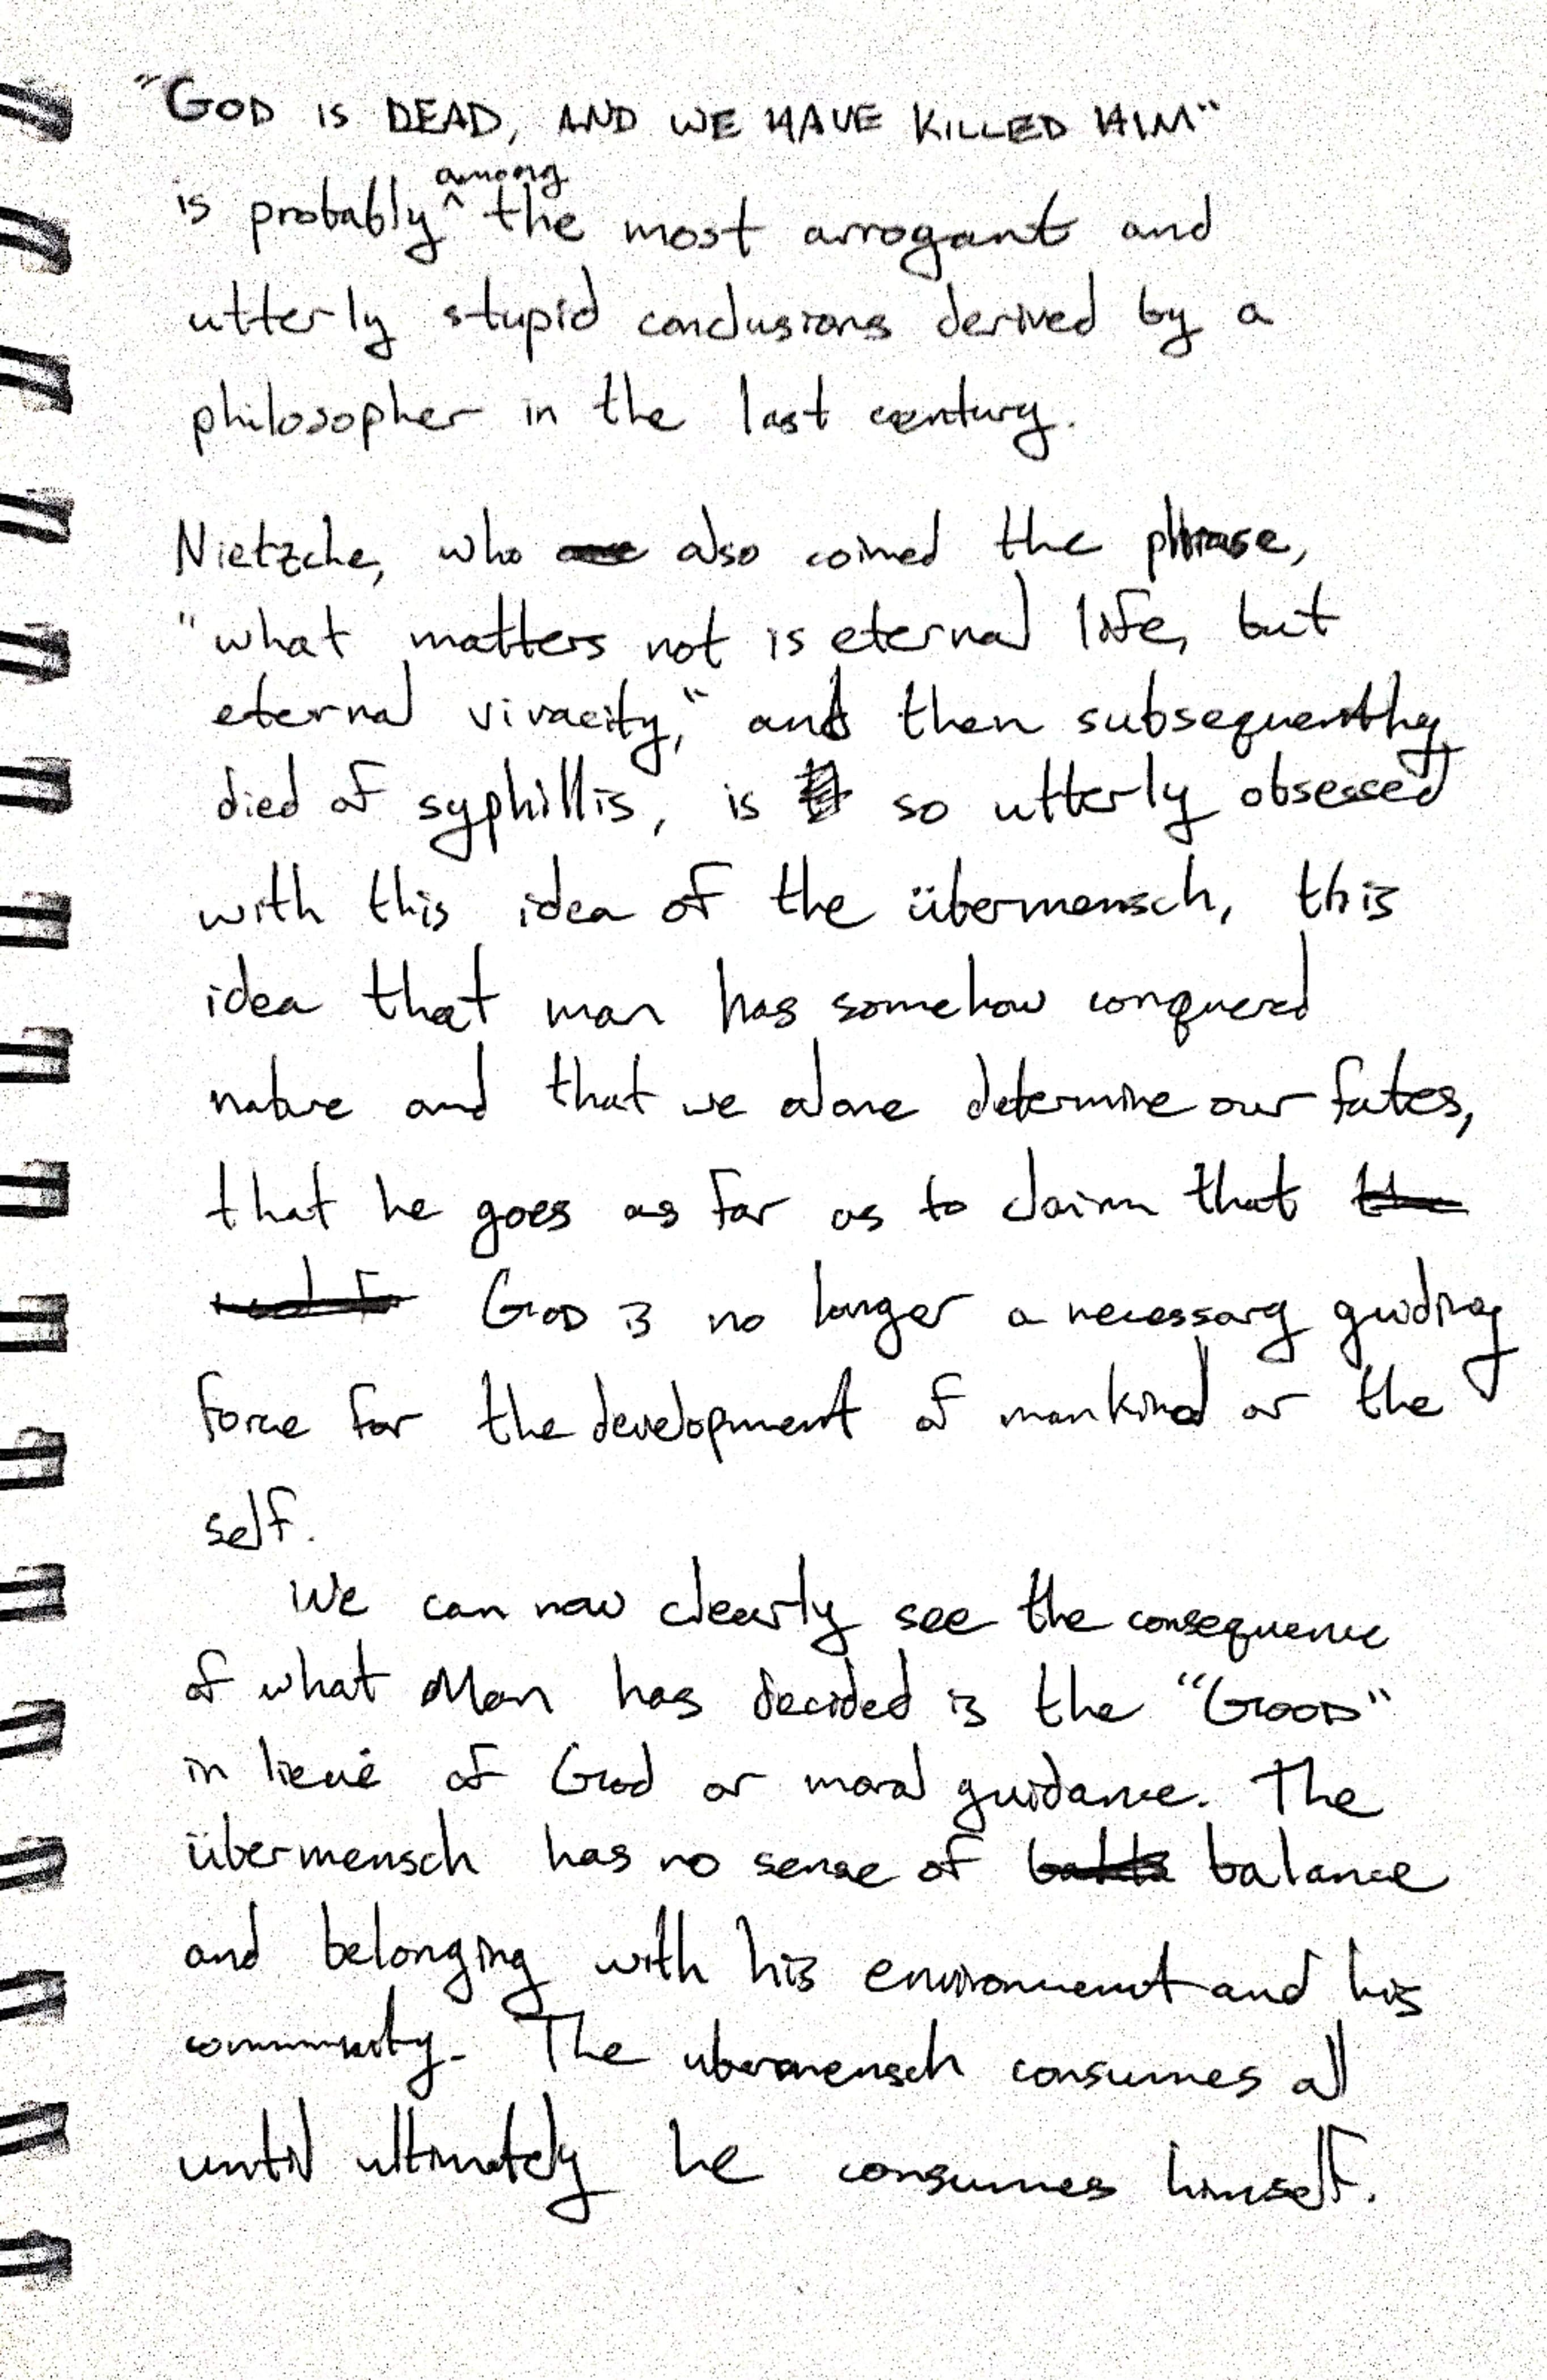 "GOD IS DEAD, AND WE HAVE KILLED HIM"
is probably ^among the most arrogant and
utterly stupid conclusions derived by a
philosopher in the last century.
Nietzche, who also coined the phrase,
"what matters not is eternal life, but
eternal vivacity," and then subsequently
died of syphillis, is so utterly obsessed
with this idea of the übermensch, this
idea that man has somehow conquerd
nature and that we alone determine our fates,
that he goes as far as to claim that the
GOD is no longer a necessary guiding
force for the development of mankind or the
self.
We can now clearly see the consequence
of what Man has decided is the "GOOD"
in lieue of God or moral guidance. The
übermensch has no sense of balance
and belonging with his environment and his
community. The ubermensch consumes all
until ultimately he consumes himself.